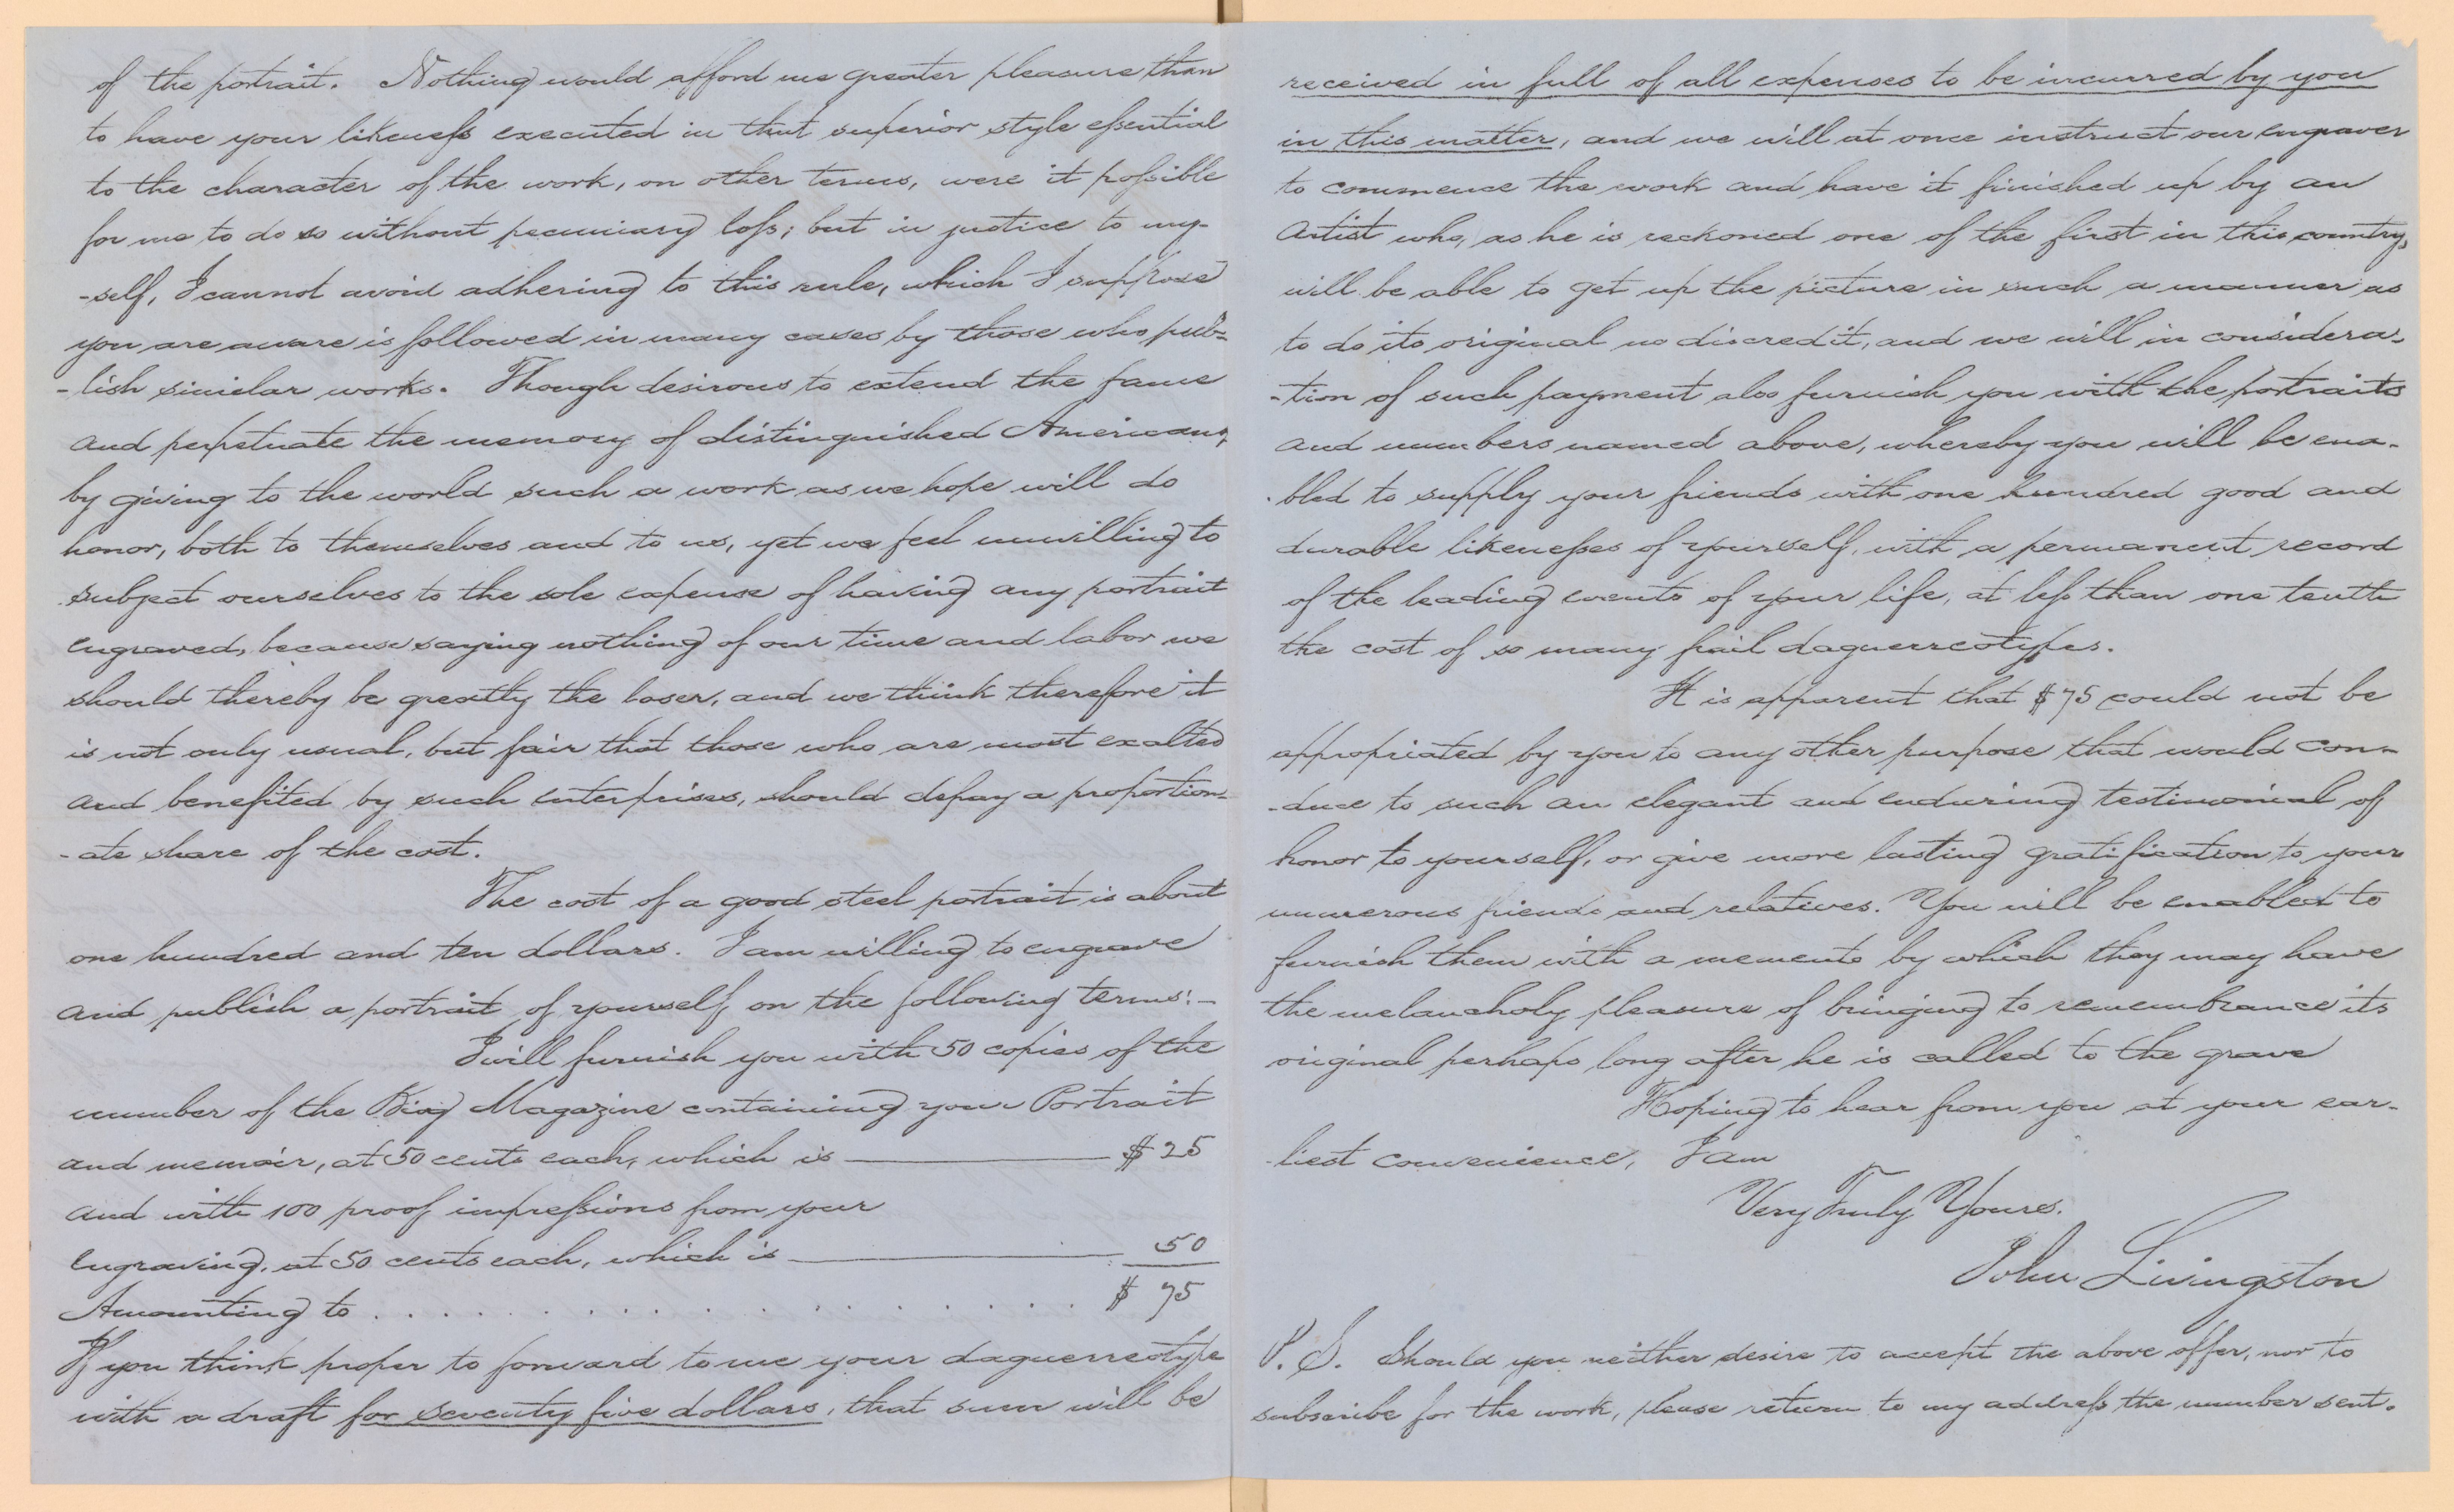 of the portrait. Nothing would afford me greater pleasure than
to have your likeness executed in that superior style essential
to the character of the work, on other terms, were it possible
for me to do so without pecuniary loss; but in justice to my-
-self, I cannot avoid adhering to this rule, which I suppose
you are aware is followed in many cases by those who pub-
-lish similar works. Though desirous to extend the fame
and perpetuate the memory of distinguished Americans,
by giving to the world such a work as we hope will do
honor, both to themselves and to us, yet we feel unwilling to
subject ourselves to the sole expense of having any portrait
engraved, because saying nothing of our time and labor we
should thereby be greatly the loser, and we think therefore it
is not only usual, but fair that those who are most exalted
and benefited by such enterprises, should defray a proportion-
-ate share of the cost.
The cost of a good steel portrait is about
one hundred and ten dollars. I am willing to engrave
and publish a portrait of yourself on the following terms:-
I will furnish you with 50 copies of the
number of the Biog Magazine containing your Portrait
and memoir, at 50 cents each, which is $25
and with 100 proof impressions from your
engraving, at 50 cents each, which is 50
Amounting to . . . . . . . . . . . . . . $ 75
If you think proper to forward to me your daguerreotype
with a draft for seventy five dollars, that sum will be
received in full of all expenses to be incurred by you
in this matter, and we will at once instruct our engraver
to commence the work and have it finished up by an
artist who, as he is reckoned one of the first in this country,
will be able to get up the picture in such a manner as
to do its original no discredit, and we will in considera-
-tion of such payment also furnish you with the portraits
and numbers named above, whereby you will be ena-
-bled to supply your friends with one hundred good and
durable likenesses of yourself, with a permanent record
of the leading events of your life, at less than one tenth
the cost of so many frail daguerreotypes.
It is apparent that $75 could not be
appropriated by you to any other purpose that would con-
-duce to such an elegant and enduring testimonial of
honor to yourself, or give more lasting gratification to your
numerous friends and relatives. You will be enabled to
furnish them with a memento by which they may have
the melancholy pleasure of bringing to remembrance its
original perhaps long after he is called to the grave
Hoping to hear from you at your ear-
liest convenience, I am
Very Truly Yours.
John Livingston
P. S. Should you neither desire to accept the above offer, nor to
subscribe for the work, please return to my address the number sent.